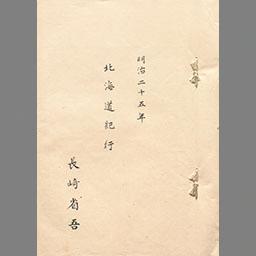 明治二十五年
北海道紀行
長崎省吾